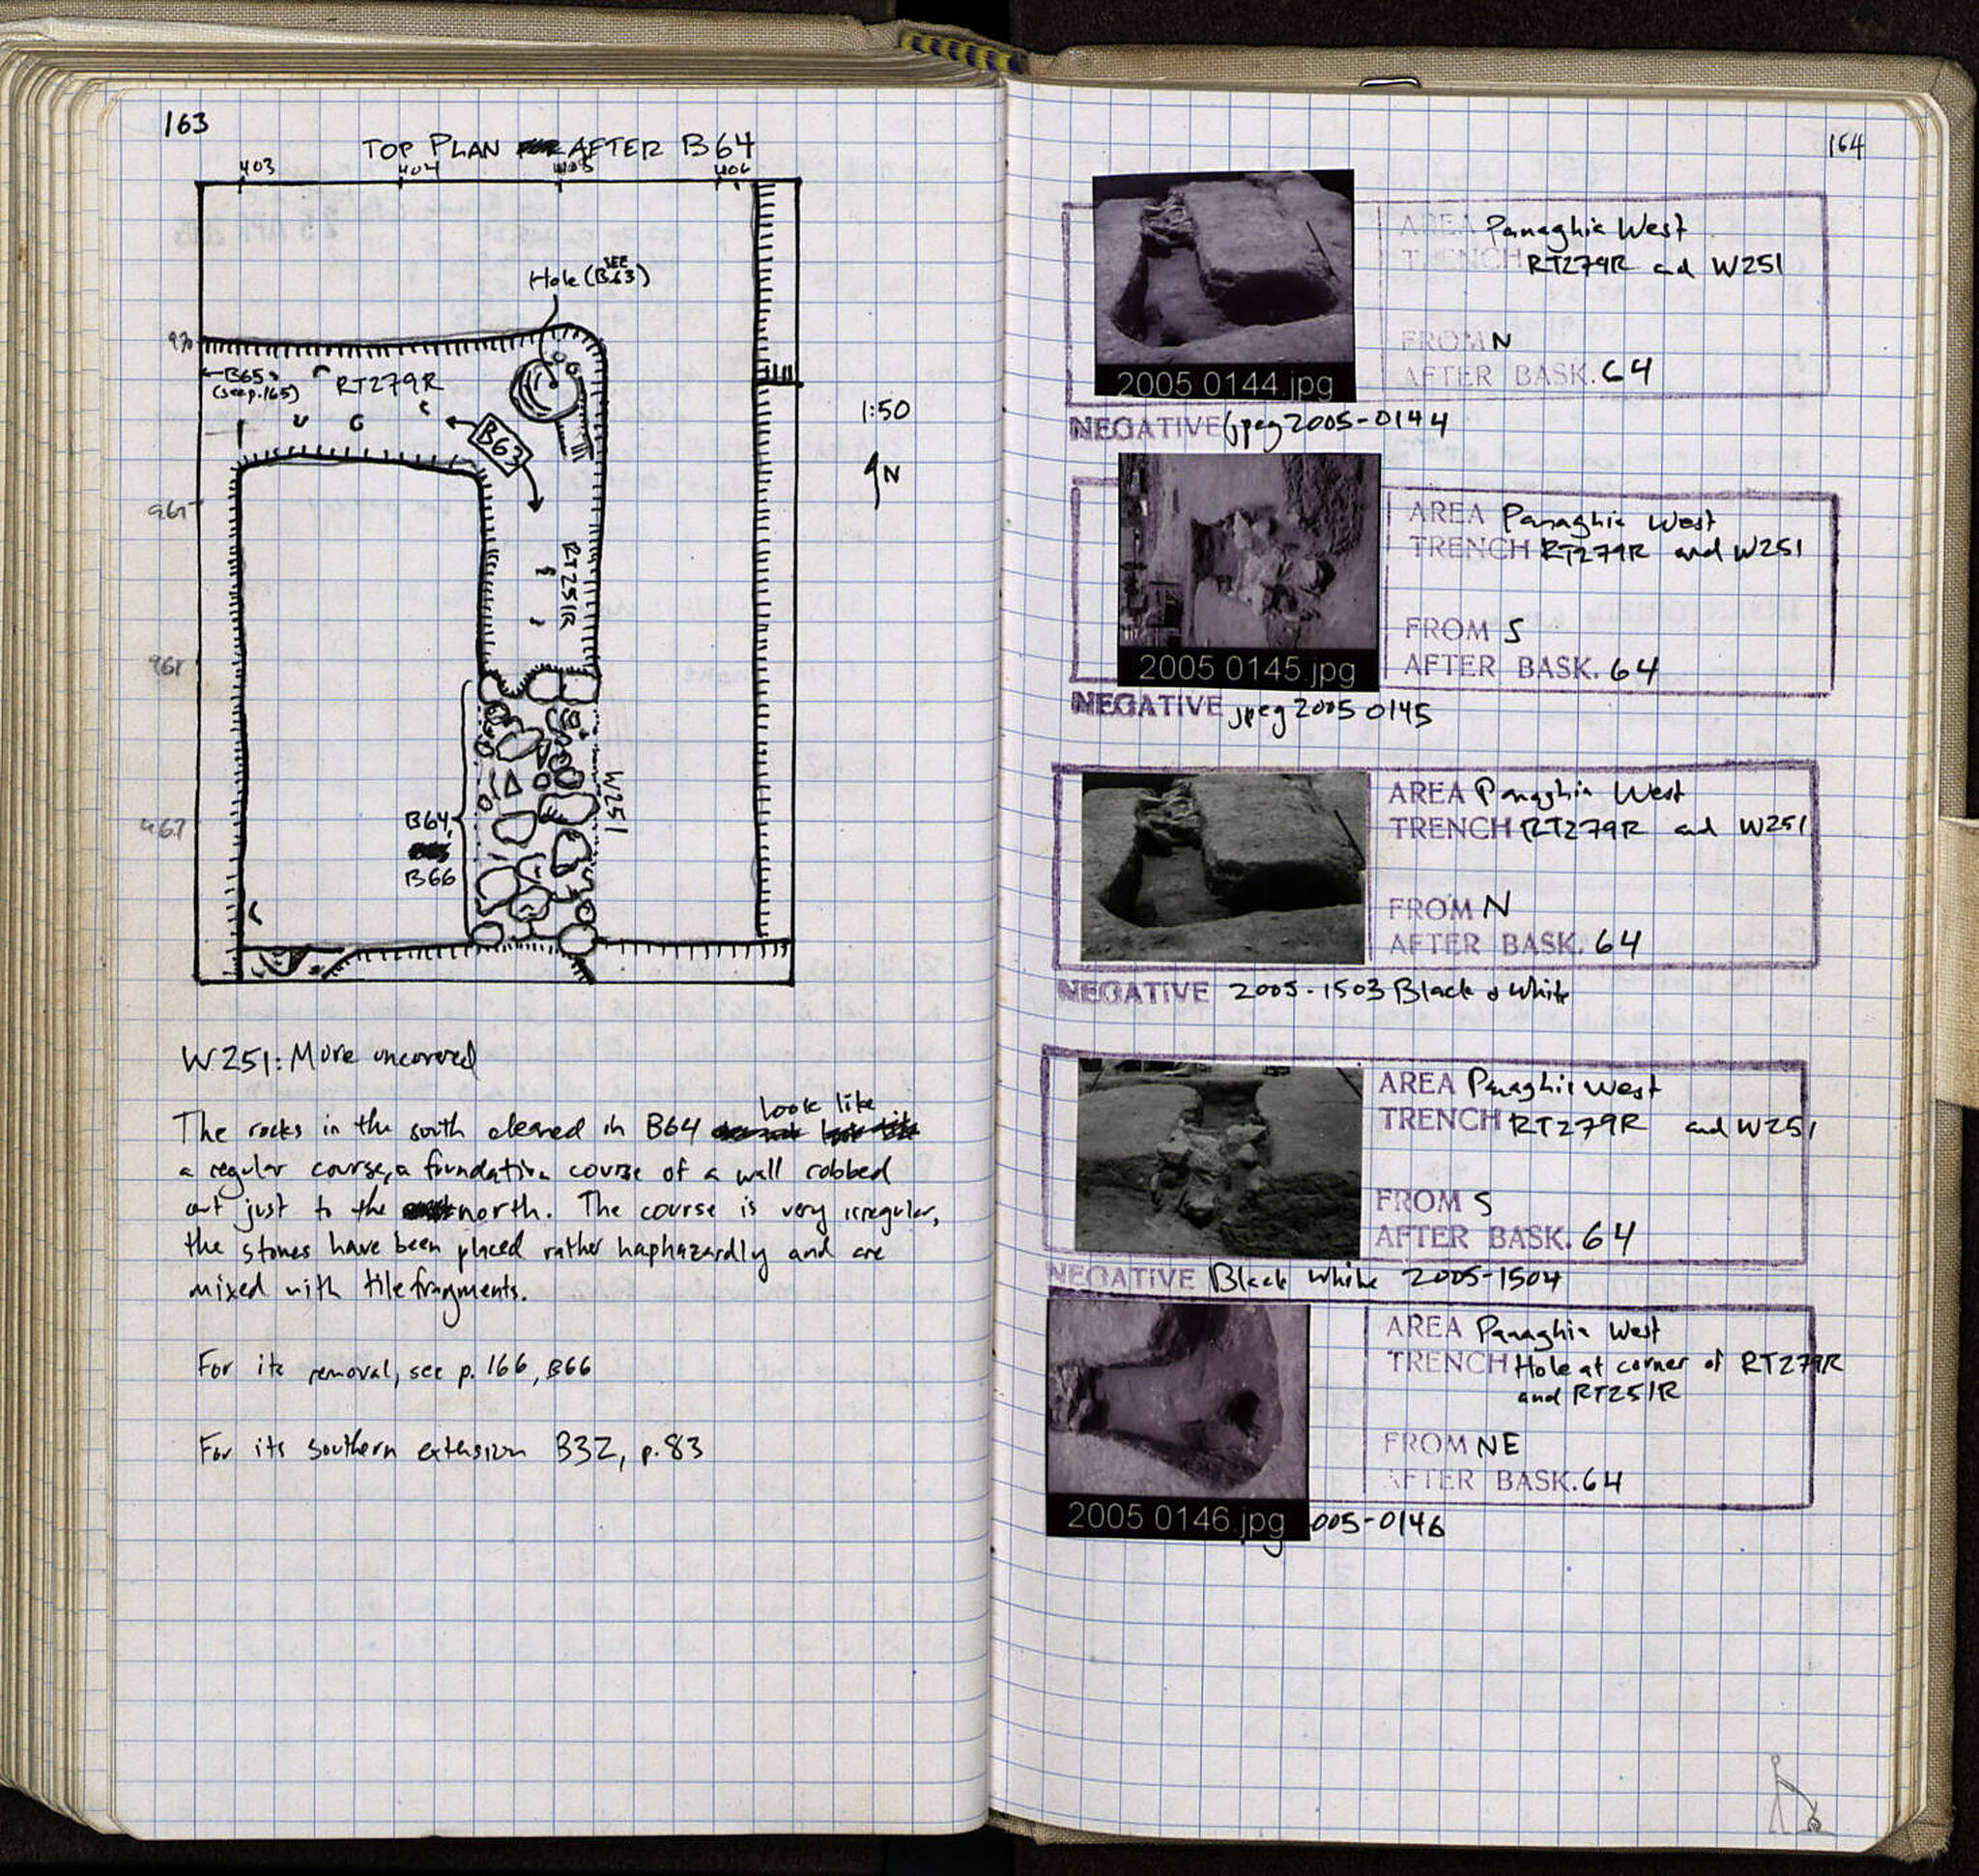 163
TOP PLAN AFTER B64
403 404 405 406
Hole (SEE B.63)
970
←B65
(see p.165)
RT279R
B63
1:50
N
RT251R
968
967
W251
B64,
B66
W251: More uncovered
The rocks in the south cleaned in B64 look like
a regular course, a foundation course of a wall robbed
out just to the north. The course is very irregular,
the stones have been placed rather haphazardly and are
mixed with tile fragments.
For its removal, see p. 166, B66
For its southern extension B32, p. 83
164
AREA Panaghia West
TRENCH RT279R and W251
FROM N
AFTER BASK. 64
2005 0144.jpg
NEGATIVE jpeg 2005-0144
AREA Panaghia West
TRENCH RT279R and W251
FROM S
AFTER BASK. 64
2005 0145.jpg
NEGATIVE jpeg 2005 0145
AREA Panaghia West
TRENCH RT279R and W251
FROM N
AFTER BASK. 64
NEGATIVE 2005-1503 Black & White
AREA Panaghia West
TRENCH RT279R and W251
FROM S
AFTER BASK. 64
NEGATIVE Black White 2005-1504
AREA Panaghia West
TRENCH Hole at corner of RT279R
and RT251R
FROM NE
AFTER BASK. 64
2005 0146.jpg
005-0146